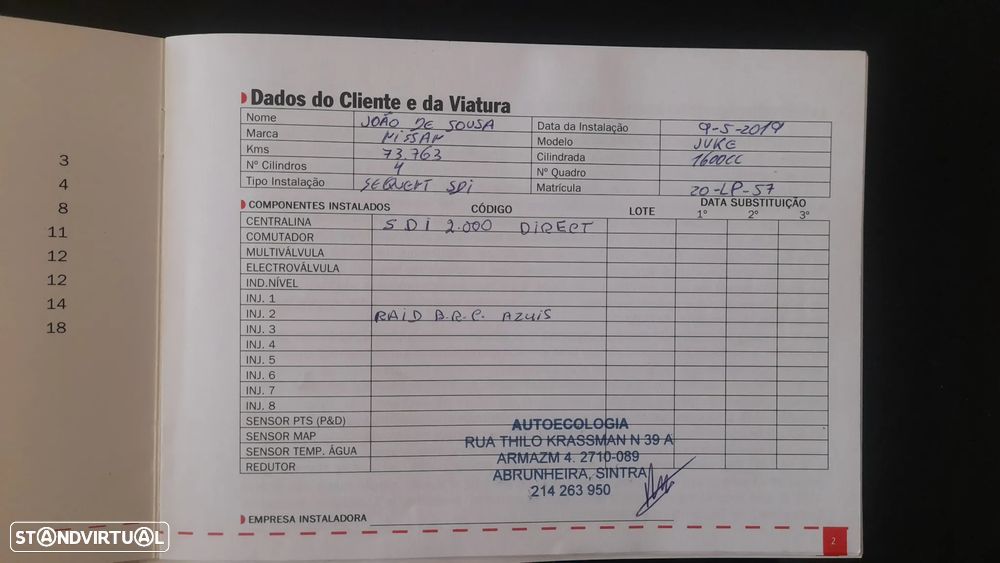 3
4
8
11
12
12
14
18
Dados do Cliente e da Viatura
Nome JOÃO DE SOUSA Data da Instalação 9-5-2019
Marca NISSAN Modelo JUKE
Kms 73.763 Cilindrada 1600CC
Nº Cilindros 4 Nº Quadro
Tipo Instalação SEQUENT SDI Matrícula 20-LP-57
COMPONENTES INSTALADOS CÓDIGO LOTE DATA SUBSTITUIÇÃO
1º 2º 3º
CENTRALINA SDI 2.000 DIRECT
COMUTADOR
MULTIVÁLVULA
ELECTROVÁLVULA
IND.NÍVEL
INJ. 1
INJ. 2 RAID B.R.C. AZUIS
INJ. 3
INJ. 4
INJ. 5
INJ. 6
INJ. 7
INJ. 8
SENSOR PTS (P&D)
SENSOR MAP
SENSOR TEMP. ÁGUA
REDUTOR
AUTOECOLOGIA
RUA THILO KRASSMAN N 39 A
ARMAZM 4. 2710-089
ABRUNHEIRA, SINTRA
214 263 950
EMPRESA INSTALADORA
2
STANDVIRTUAL